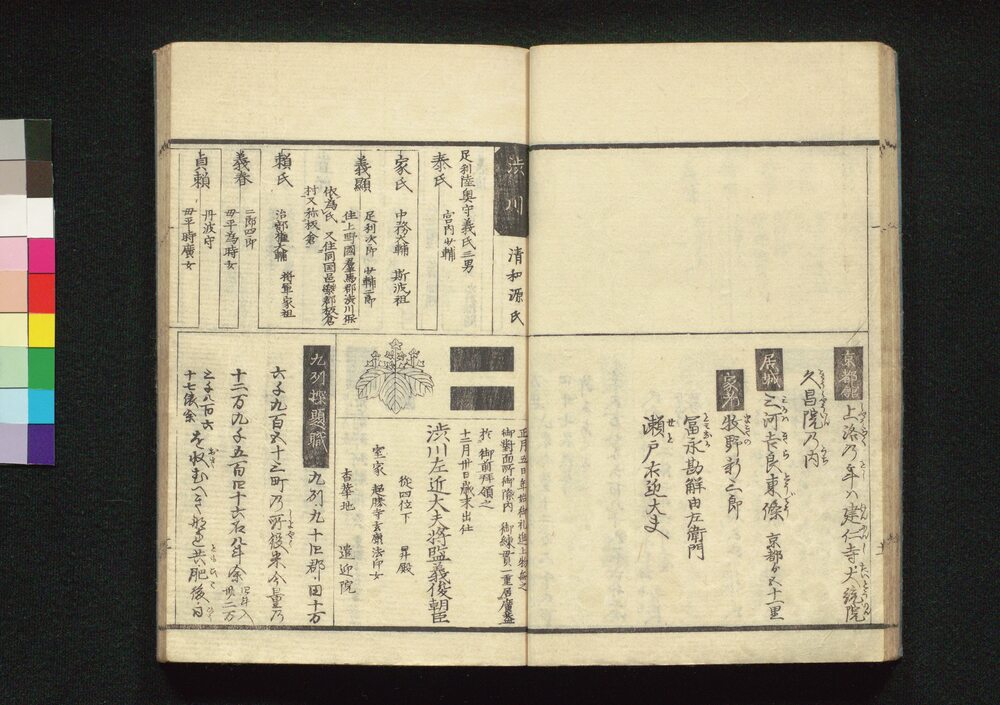 京都館
上洛乃年ハ建仁寺大統院
久昌院乃内
居城
三河吉良東條 京都ゟ五十一里
家老
牧野新二郎
冨永勘解由左衛門
瀬戸右近大夫
渋川
清和源氏
足利陸奥守義氏三男
泰氏 宮内少輔
家氏 中務大輔 斯波祖
義顯 足利次郎 少輔二郎
住上野國群馬郡渋川保
依為氏 又住同国邑樂郡板倉
村又称板倉
頼氏 治部権大輔 将軍家祖
義春 二郎四郎
母平為時女
貞頼 丹波守
母平時廣女
正月五日年始御礼進上物無之
御對面所御縁内 御練貫一重居廣蓋
於 御前拜領之
十二月卅日歳末出仕
渋川左近大夫将監義俊朝臣
從四位下 昇殿
室家 超勝寺玄慶法印女
香華地 遣迎院
九列探題職
九列九十四郡田十万
六千九百五十三町乃所役米今量乃
十二万九千五百四十六石八斗余
十七俵余